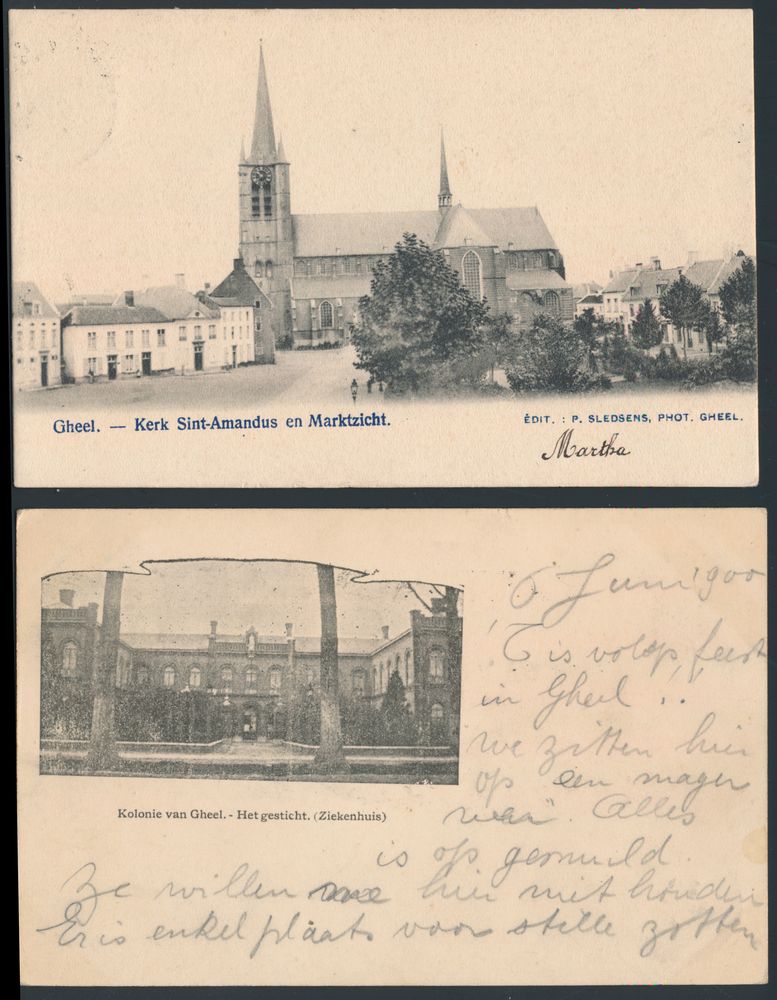 Gheel. — Kerk Sint-Amandus en Marktzicht.
ÉDIT. : P. SLEDSENS, PHOT. GHEEL.
Martha
6 Juni 900
'T is volop feest
in Gheel !!
We zitten hier
op een mager
Alles
is op geruild.
Kolonie van Gheel. - Het gesticht. (Ziekenhuis)
Ze willen me hier niet houden
Er is enkel plaats voor stille zotten